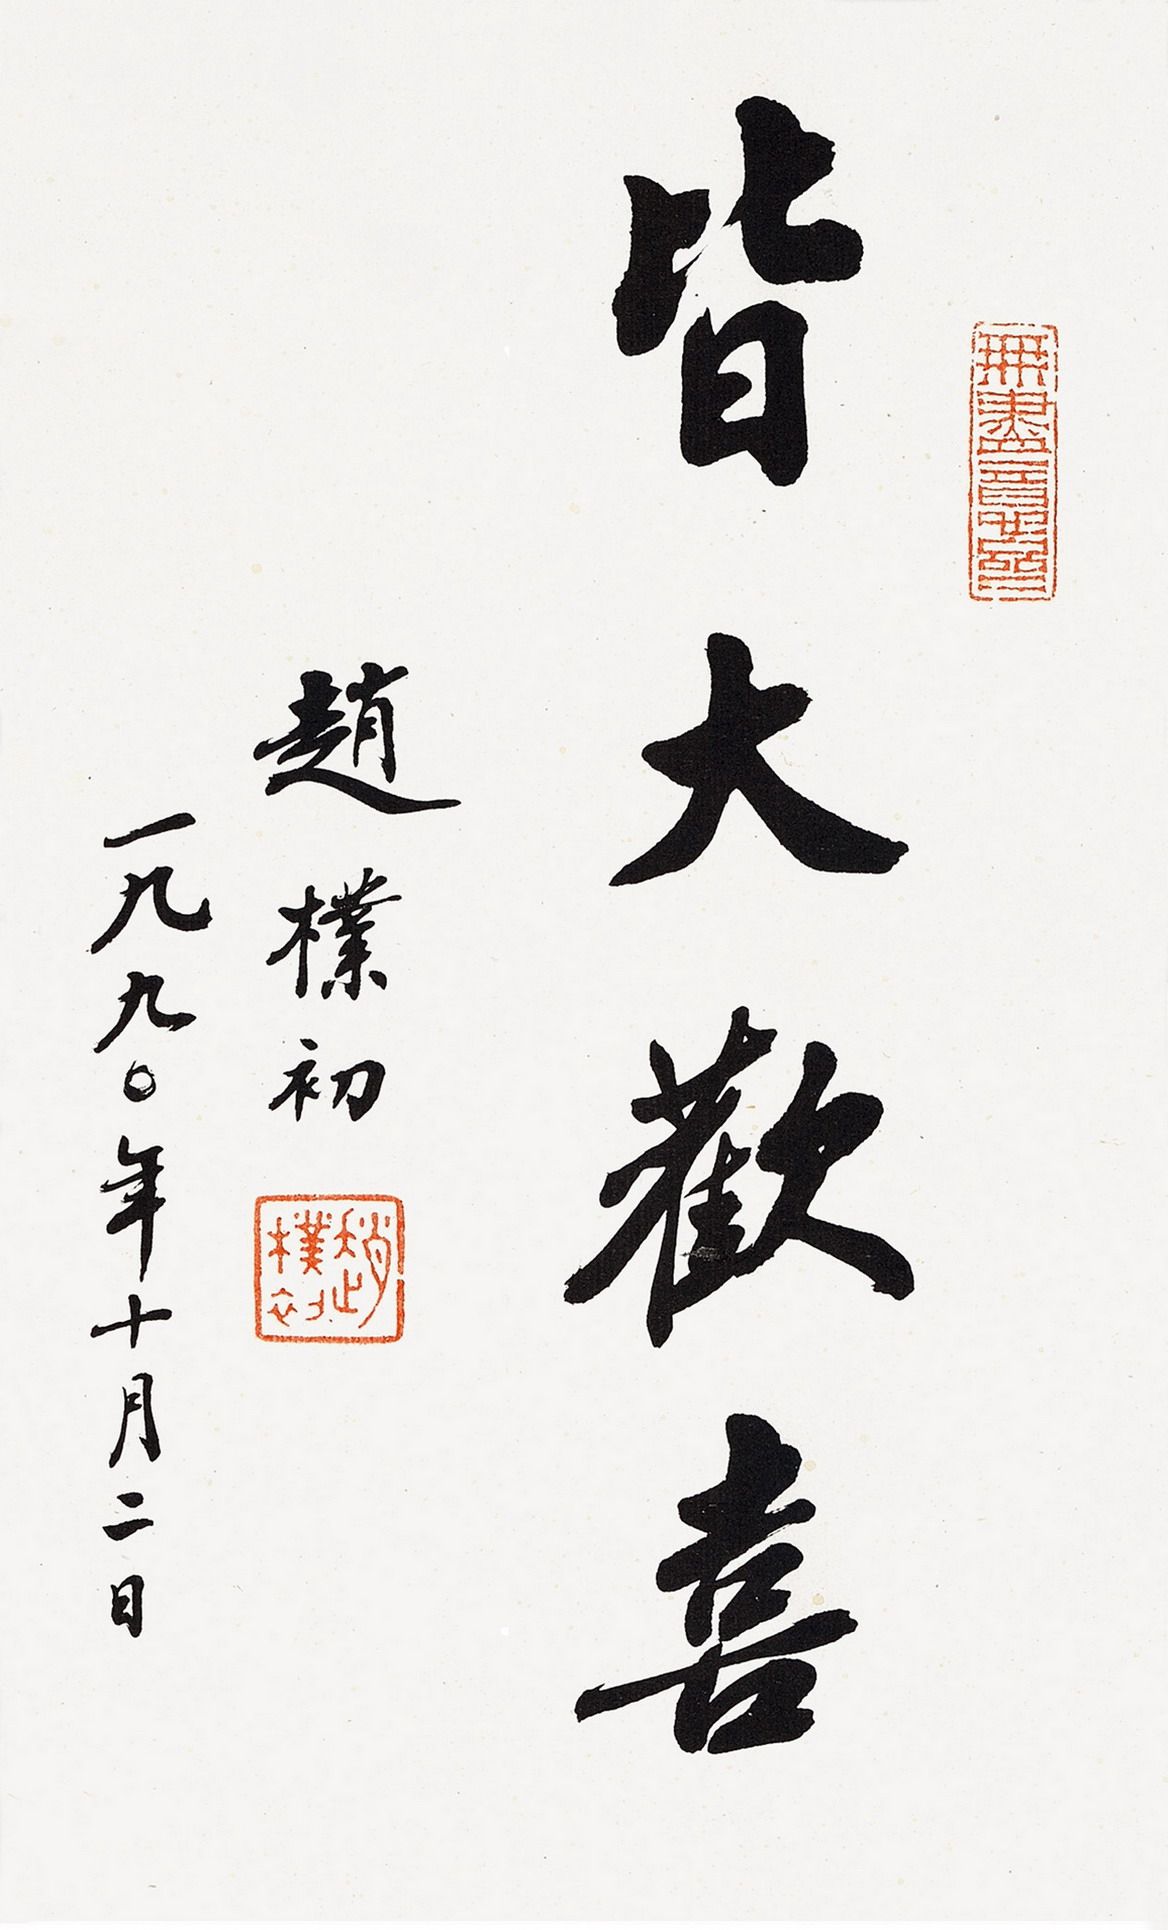 皆大歡喜
趙樸初
一九九〇年十月二日
無盡意齋
趙樸初